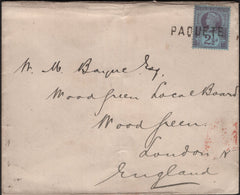 PAQUETE
2½
W. M. Bayne Esq.
Wood Green Local Board
Wood Green
London N
England